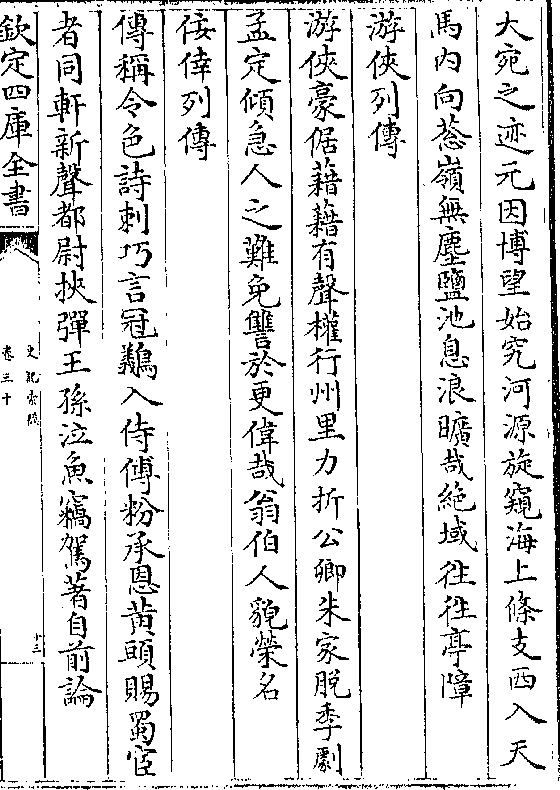 大宛之迹元因博望始究河源旋窺海上條支西入天
馬内向葱嶺無塵鹽池息浪曠哉絶域往往亭障
游俠列傳
游俠豪倨藉藉有聲權行州里力折公卿朱家脱季劇
孟定傾急人之難免讐於更偉哉翁伯人貌榮名
佞倖列傳
傳稱令色詩刺巧言冠鵕入侍傅粉承恩黄頭賜蜀宦
者同軒新聲都尉挾彈王孫泣魚竊駕著自前論
欽定四庫全書
史記索隱
卷三十
十三